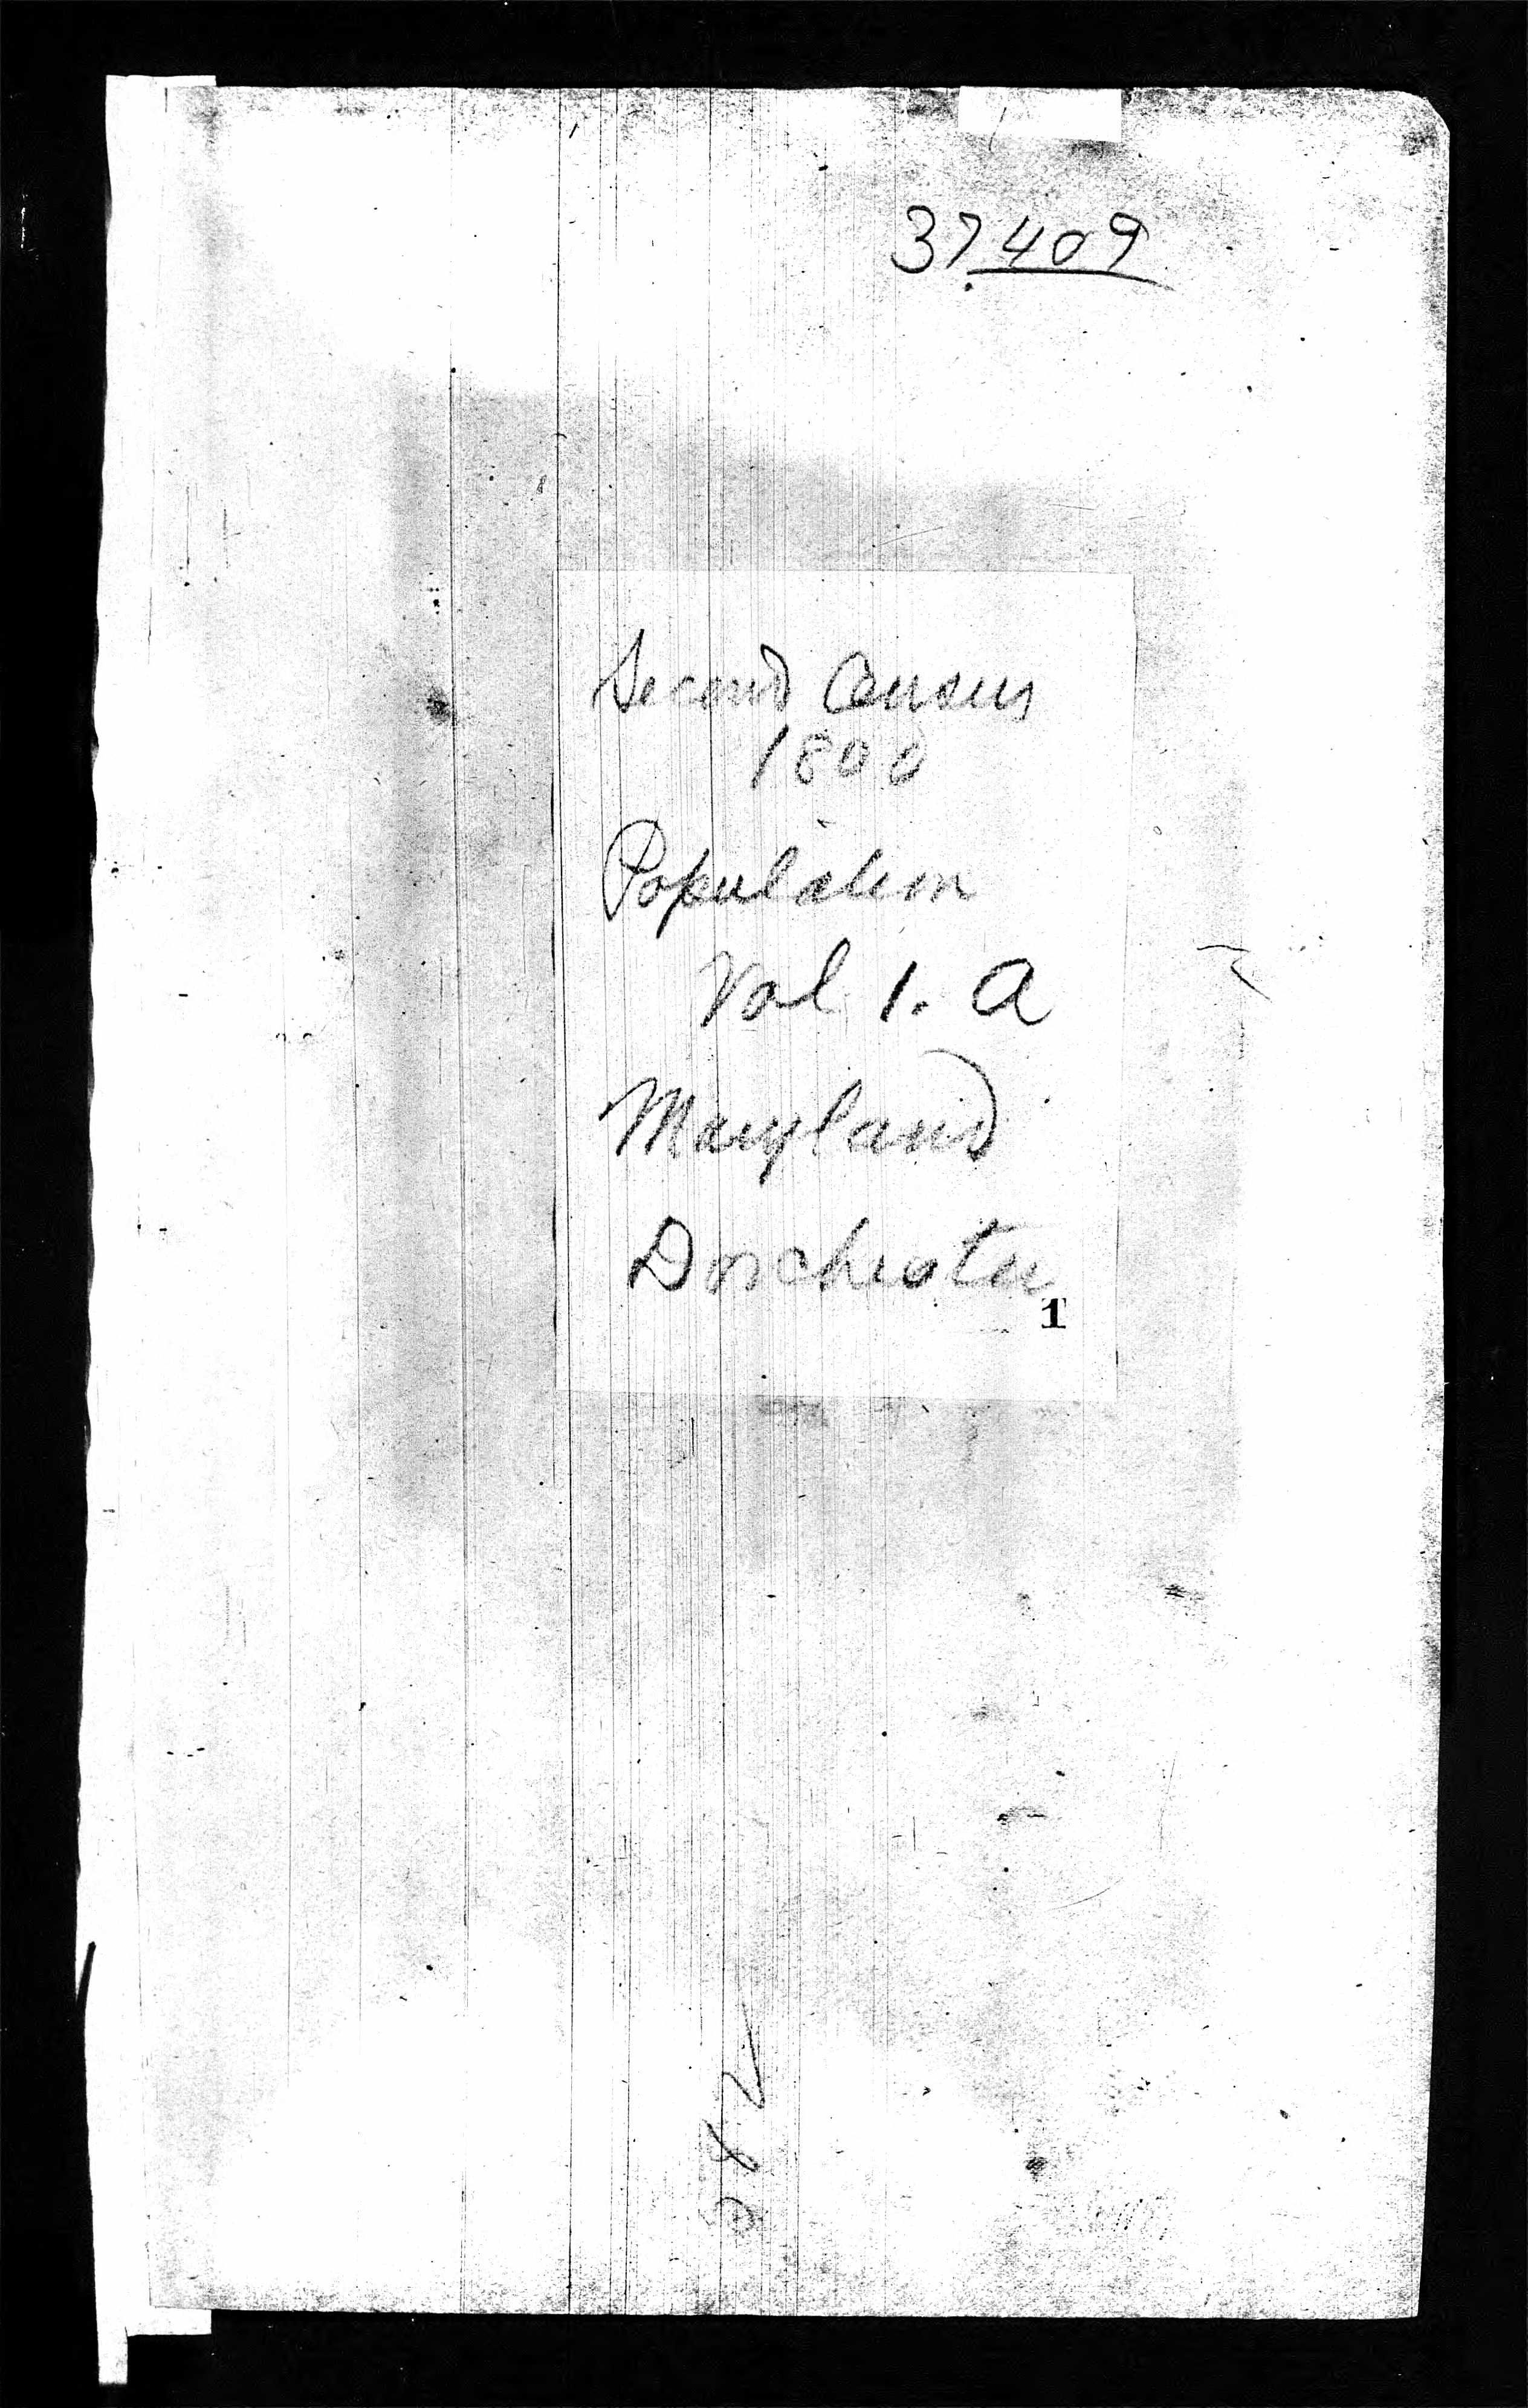 37409
Second Census
1800
Population
Vol 1. A
Maryland
Dorchester
1